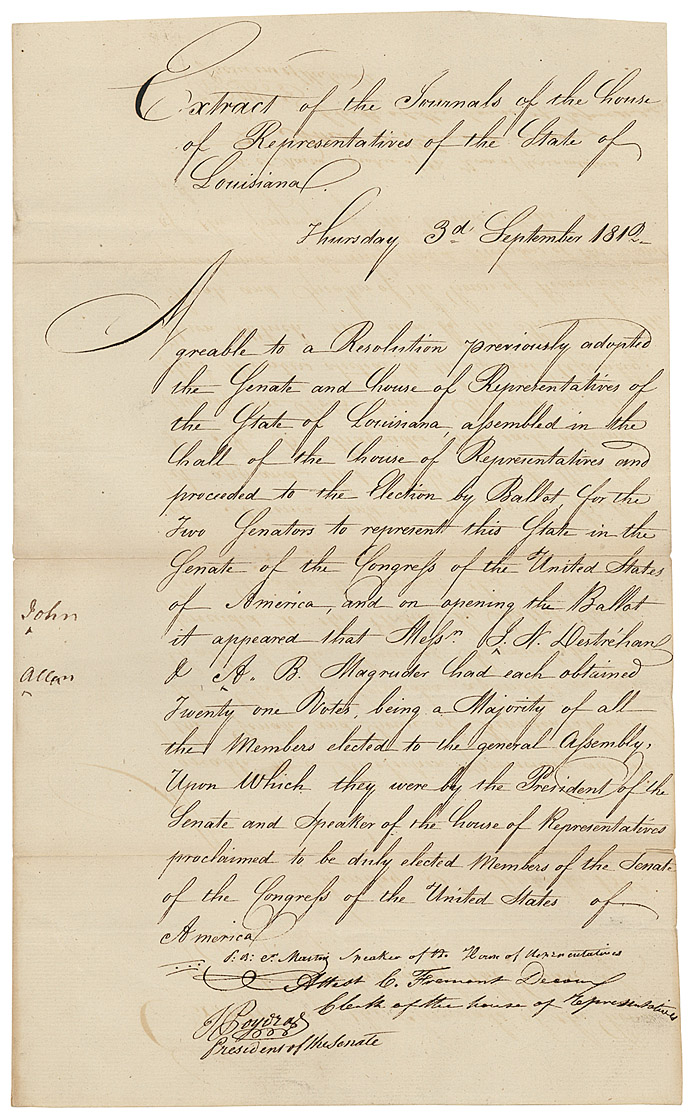 Extract of the Journals of the house
of Representatives of the State of
Louisiana.
Thursday 3d September 1812
Agreable to a Resolution previously adopted
the Senate and house of Representatives of
the State of Louisiana, assembled in the
hall of the house of Representatives and
proceeded to the Election by Ballot, for the
Two Senators to represent this State in the
Senate of the Congress of the United States
of America, and on opening the Ballot
John
it appeared that Messrs J. N. Destréhan
Allan
& A. B. Magruder had each obtained
Twenty one Votes, being a Majority of all
the Members elected to the general Assembly,
Upon Which they were by the President of the
Senate and Speaker of the house of Representatives
proclaimed to be duly elected Members of the Senate
of the Congress of the United States of
America
P. B. St Martin Speaker of the House of representatives
Attest C. Fremont
Clerk of the house of representatives
J Poydras
President of the Senate